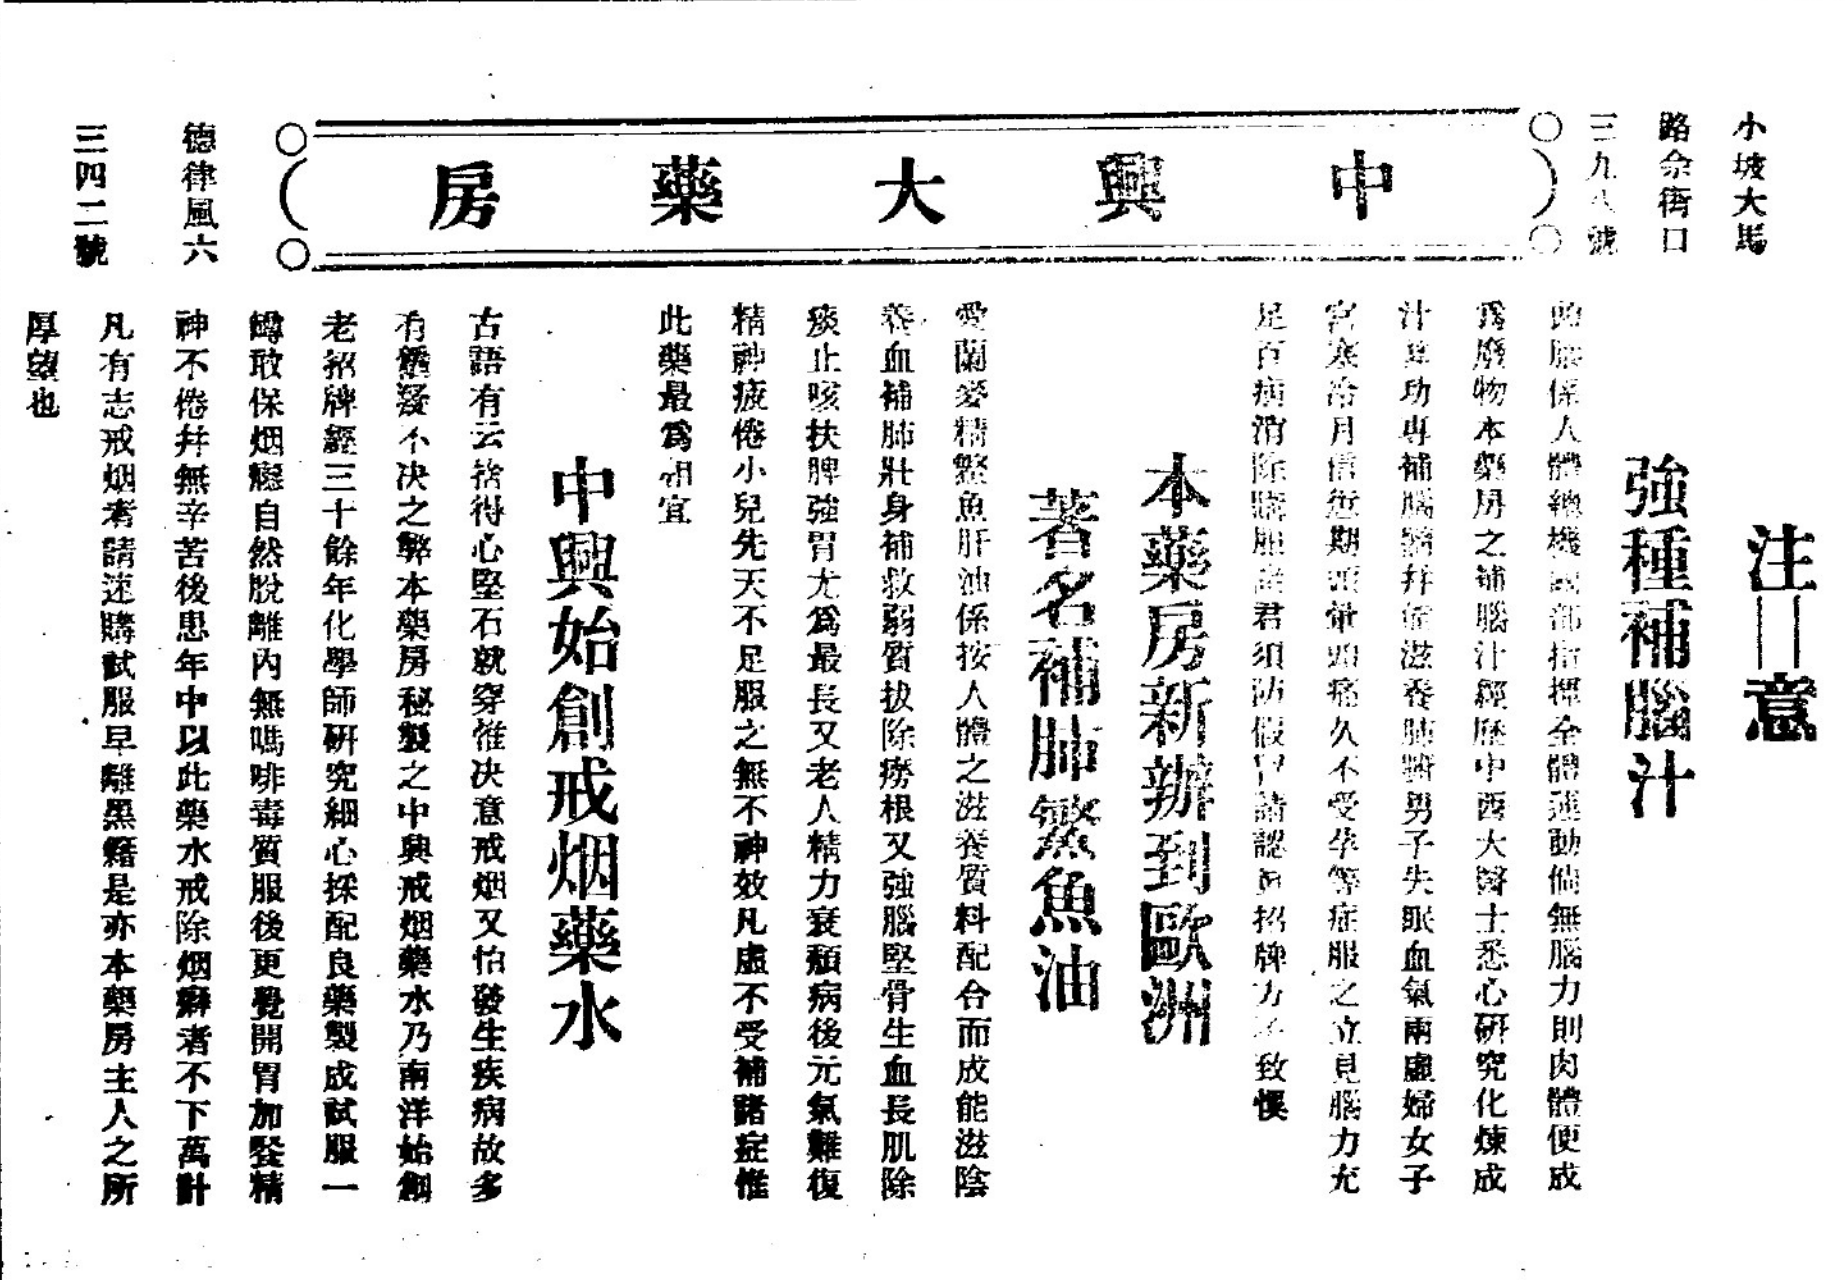 小坡大馬
路余街口
三九八號
中興大藥房
德律風六
三四二號
注意
強種補腦汁
腦係人體總機關部指揮全體運動倘無腦力則肉體便成
爲廢物本藥房之補腦汁經歷中西大醫士悉心研究化煉成
汁其功專補腦髓并能滋養肺臟男子失眠血氣兩虛婦女子
宮寒冷月信愆期頭暈頭痛久不受孕等症服之立見腦力充
足百病消除購服諸君須防假冒請認眞招牌方不致悞
本藥房新辦到歐洲
著名補肺鰵魚油
愛蘭麥精鰵魚肝油係按人體之滋養質料配合而成能滋陰
養血補肺壯身補救弱質拔除癆根又強腦堅骨生血長肌除
痰止咳扶脾強胃尤爲最長又老人精力衰頹病後元氣難復
精神疲倦小兒先天不足服之無不神效凡虛不受補諸症惟
此藥最爲相宜
中興始創戒烟藥水
古語有云捨得心堅石就穿惟决意戒烟又怕發生疾病故多
有猶疑不决之弊本藥房秘製之中興戒烟藥水乃南洋始創
老招牌經三十餘年化學師研究細心採配良藥製成試服一
罇敢保烟癮自然脫離內無嗎啡毒質服後更覺開胃加餐精
神不倦幷無辛苦後患年中以此藥水戒除烟癖者不下萬計
凡有志戒烟者請速購試服早離黑籍是亦本藥房主人之所
厚望也